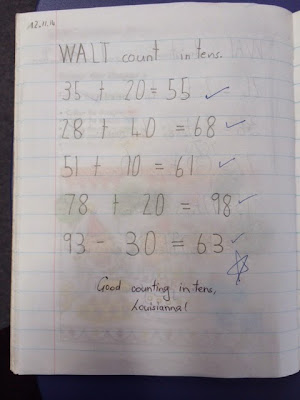 12.11.14
WALT count in tens.
35 + 20 = 55 ✓
28 + 40 = 68 ✓
51 + 10 = 61 ✓
78 + 20 = 98 ✓
93 - 30 = 63 ✓
Good counting in tens,
Louisianna!